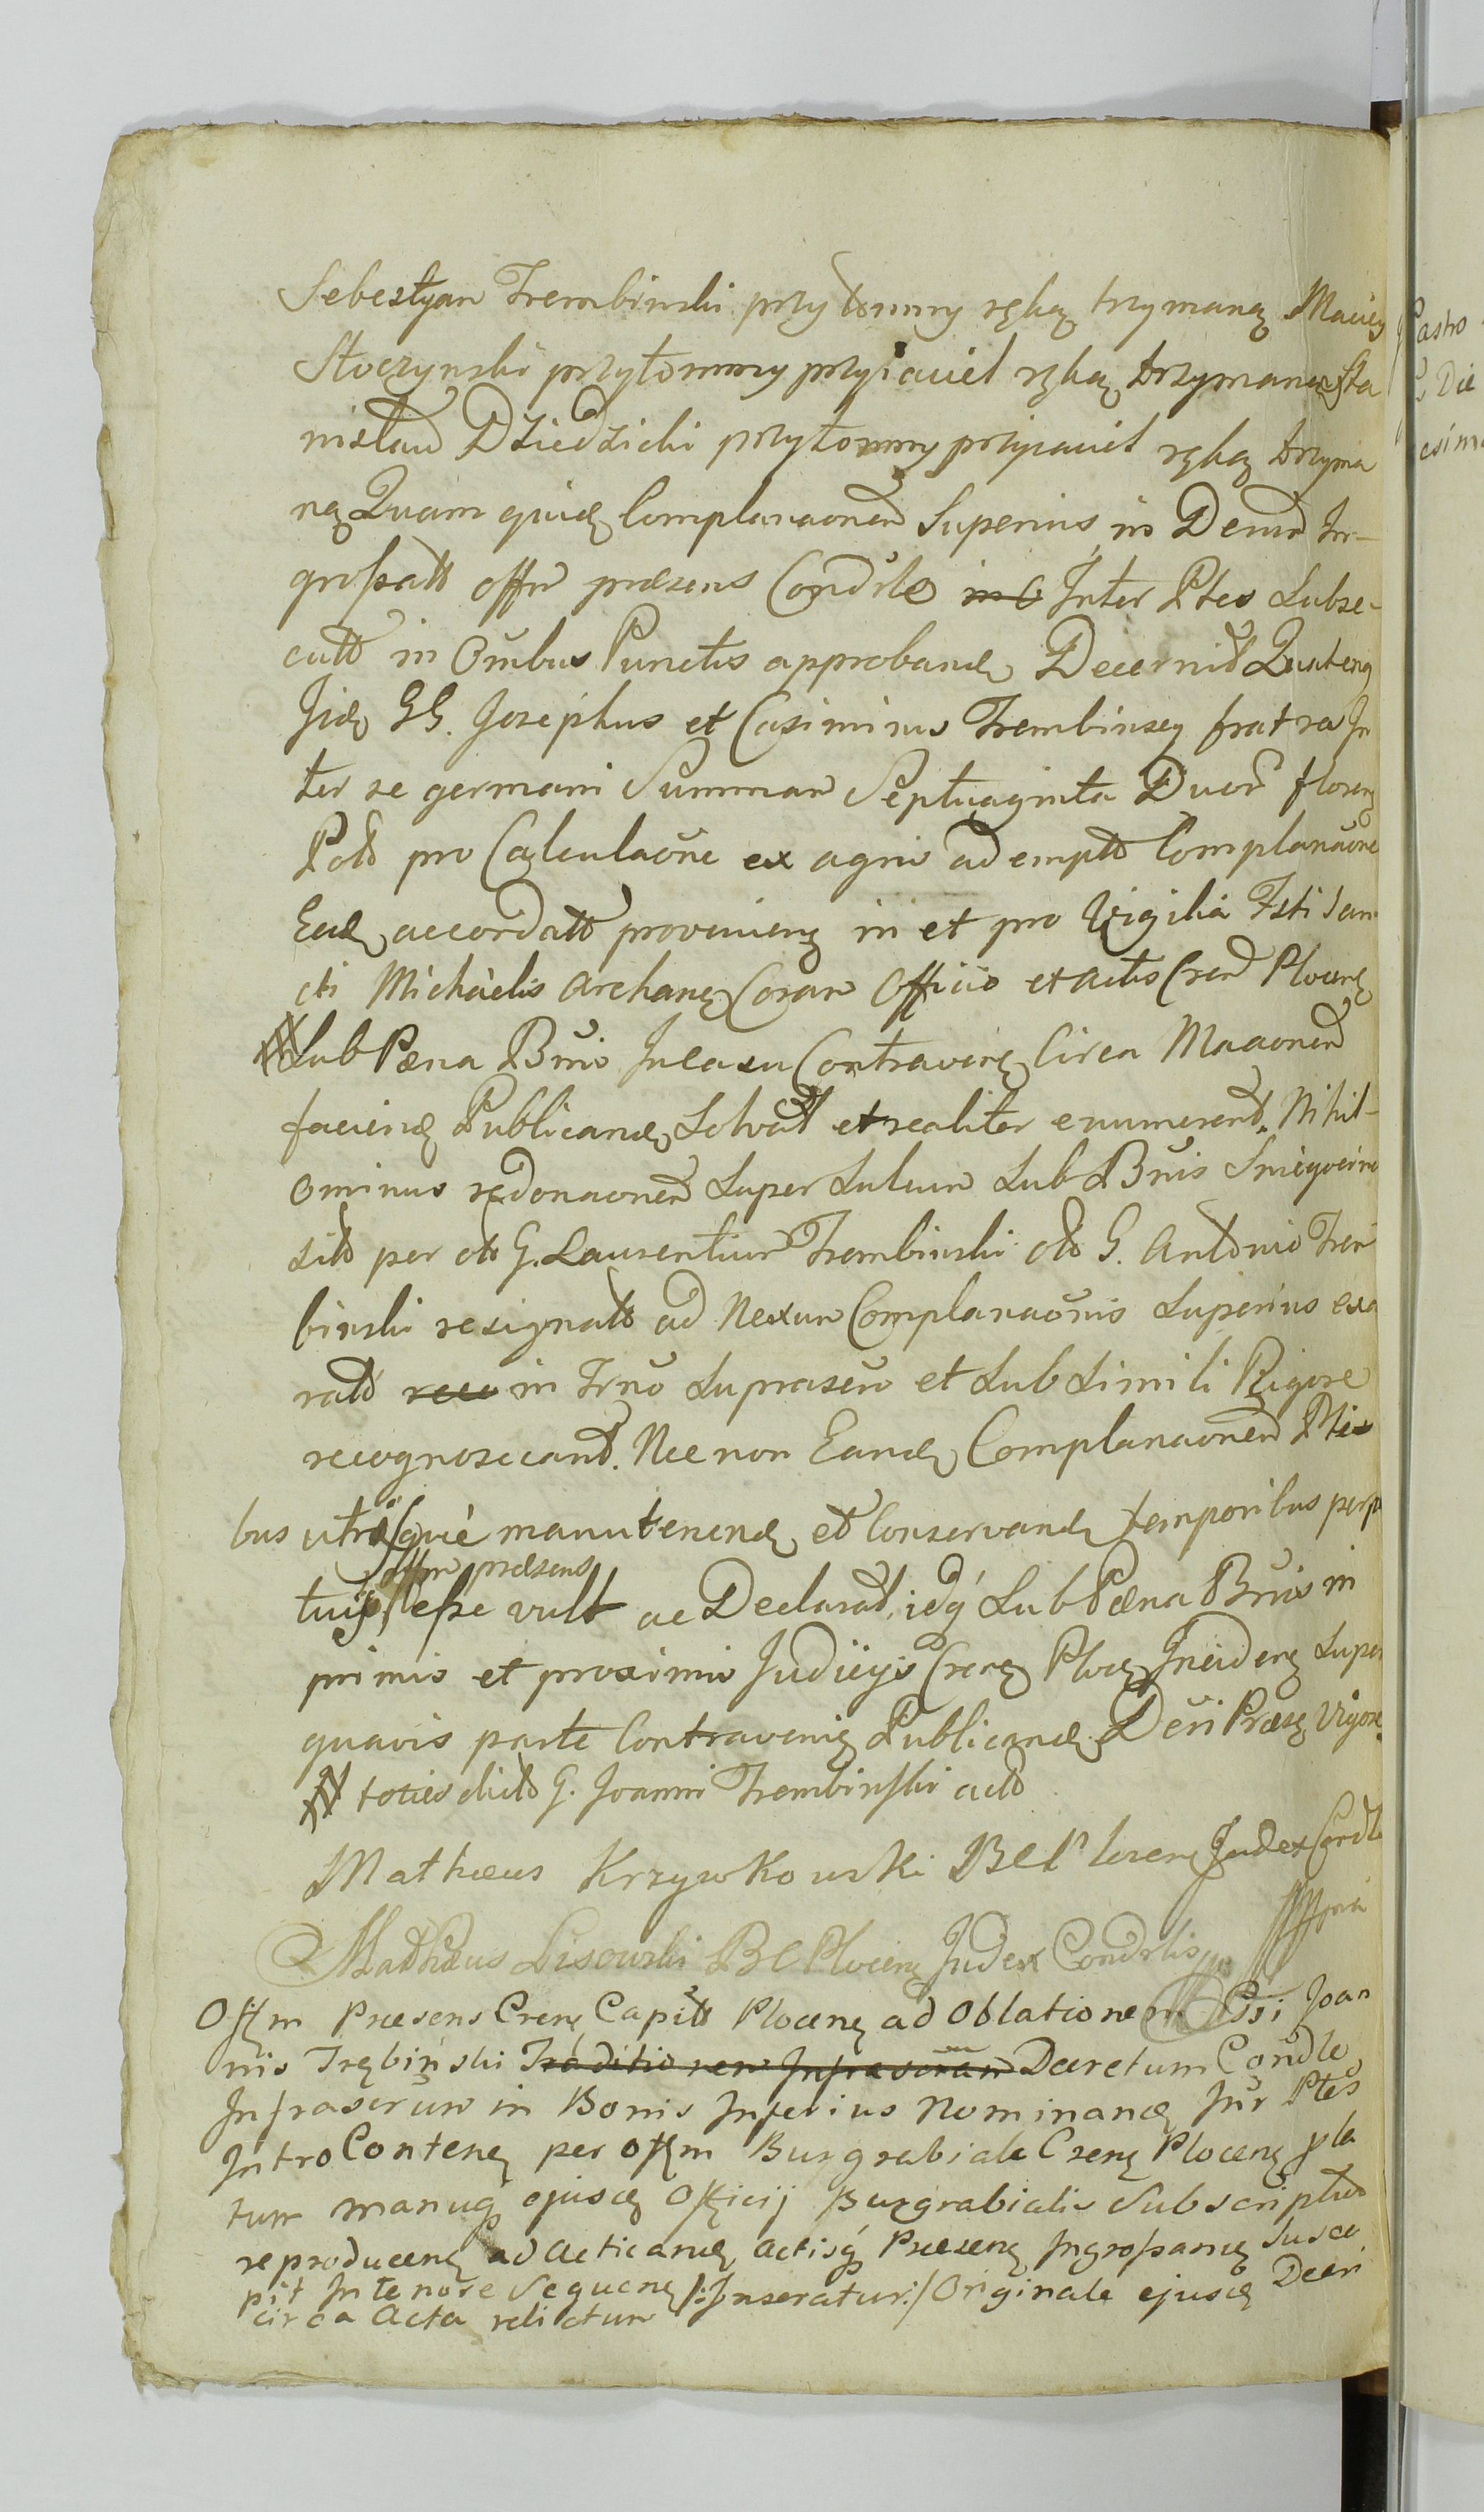 Sebestyan Trembinski przytomny ręką trzymaną Maciey
Stoczynski przytomny przyiaciel ręką trzymaną Sta
nisław Dziedzicki przytomny przyiaciel ręką trzyma
ną Quam quidę Complanaonem Superius in Decreto In-
grossatt offm præsens Condrle in C Inter Ptes Subse-
cutt in Omibus Punctis approbandę Decernit Quateng
Jidę GG. Josephus et Casimirus Trembinscy fratres In
ter se germani Summam Septuaginta Duor floreng
Polt pro Calculaone ex agris ad emptt Complanaone
Eadę accordatt provenieng in et pro Vigilia Fsti San
cti Michaelis Archang Coram Officio et actis Cren Plocenę
Sub Pæna Bnis In casu Contravenę Circa Maaonem
faciendę Publicandę Solvat et realiter enumerent. Nihil-
ominus redonaonem Super Lulum Sub Bnis Sniegocino
sitt per ott G. Laurentium Trembinski ott G. Antonio Trem
binski resignatt ad Nexum Complanaonis Superius exa
ratt reco in Trno Suprascro et Sub Simili Rigore
recognoscant. Nec non Eandę Complanaonem Pti
bus utrisque manutenendę et Conservandę temporibus perpe
offm præsens
tuis esse vult ac Declarat, idq Sub Pæna Bnis in
primis et proximis Judicys Crenę Plocę Inciden​ę Super
quavis parte Contravenię Publicandę Decri Præsę Vigore.
toties dicto G. Joanni Trembinski actt
Mathæus Krzywkowski BCPlocenę Judex Condrl
Mathæus Lisowski BC Plocenę Judex Condrlis
Offm Præsens Crenę Capitt Plocenę ad Oblationem Gsi Joan
nis Trębinski Traditionem Infrascram Decretum Condle
Infrascrum in Bonis Inferius Nominandę Inr Ptes
Intro Contentę per Offm Burgrabiale Crenę Plocenę pla
tum manuq ejusdę Officij Burgrabialis Subscriptum
reproducenę ad Acticandę Actisq Præsenę Ingrossandę Susce
pit In tenore Sequenę /:Inseratur:/ Originale ejusdę Decri
circa Acta relictum